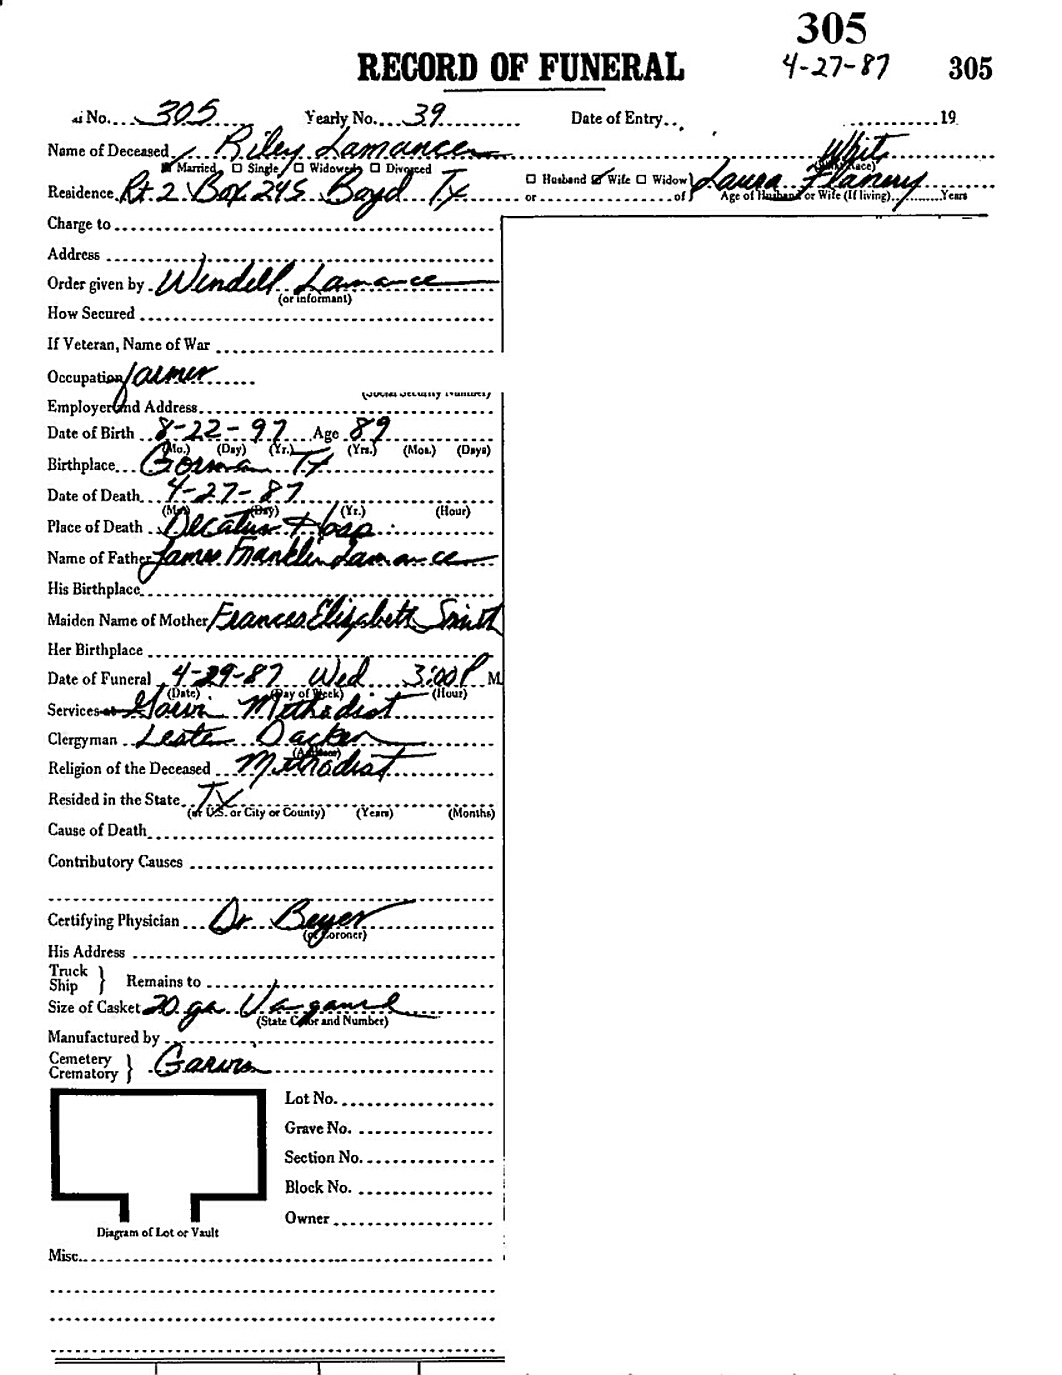 305
4-27-87
RECORD OF FUNERAL 305
No. 305 Yearly No. 39 Date of Entry 19
Name of Deceased Riley Lamance Whit
Married Single Widowed Divorced (Race)
Residence Rt. 2 Box 245 Boyd Tx Husband Wife Widow or of Laura Flanury Age of Husband or Wife (If living) Years
Charge to
Address
Order given by Wendell Lamance
(or informant)
How Secured
If Veteran, Name of War
Occupation farmer
(Social Security Number)
Employer and Address
Date of Birth 8-22-97 Age 89
(Mo.) (Day) (Yr.) (Yrs.) (Mos.) (Days)
Birthplace Gorman Tx
Date of Death 4-27-87
(Mo.) (Day) (Yr.) (Hour)
Place of Death Decatur Hosp.
Name of Father James Franklin Lamance
His Birthplace
Maiden Name of Mother Frances Elizabeth Smith
Her Birthplace
Date of Funeral 4-29-87 Wed 3:00 P M.
(Date) (Day of Week) (Hour)
Services at Garvin Methodist
Clergyman Lester Dacken
(Address)
Religion of the Deceased Methodist
Resided in the State Tx
(or U.S. or City or County) (Years) (Months)
Cause of Death
Contributory Causes
Certifying Physician Dr Beyer
(or Coroner)
His Address
Truck
Ship } Remains to
Size of Casket 20 ga.
(State Color and Number)
Manufactured by
Cemetery
Crematory } Garvin
Lot No.
Grave No.
Section No.
Block No.
Owner
Diagram of Lot or Vault
Misc.